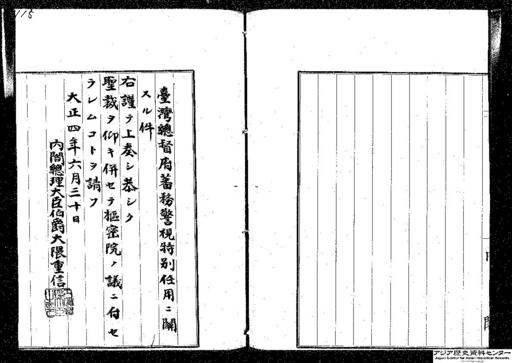 臺灣總督府蕃務警視特別任用ニ關
スル件
右謹テ上奏シ恭シク
聖裁ヲ仰キ併セテ樞密院ノ議ニ付セ
ラレムコトヲ請フ
大正四年六月三十日
内閣總理大臣伯爵大隈重信
アジア歴史資料センター
Japan Center for Asian Historical Records